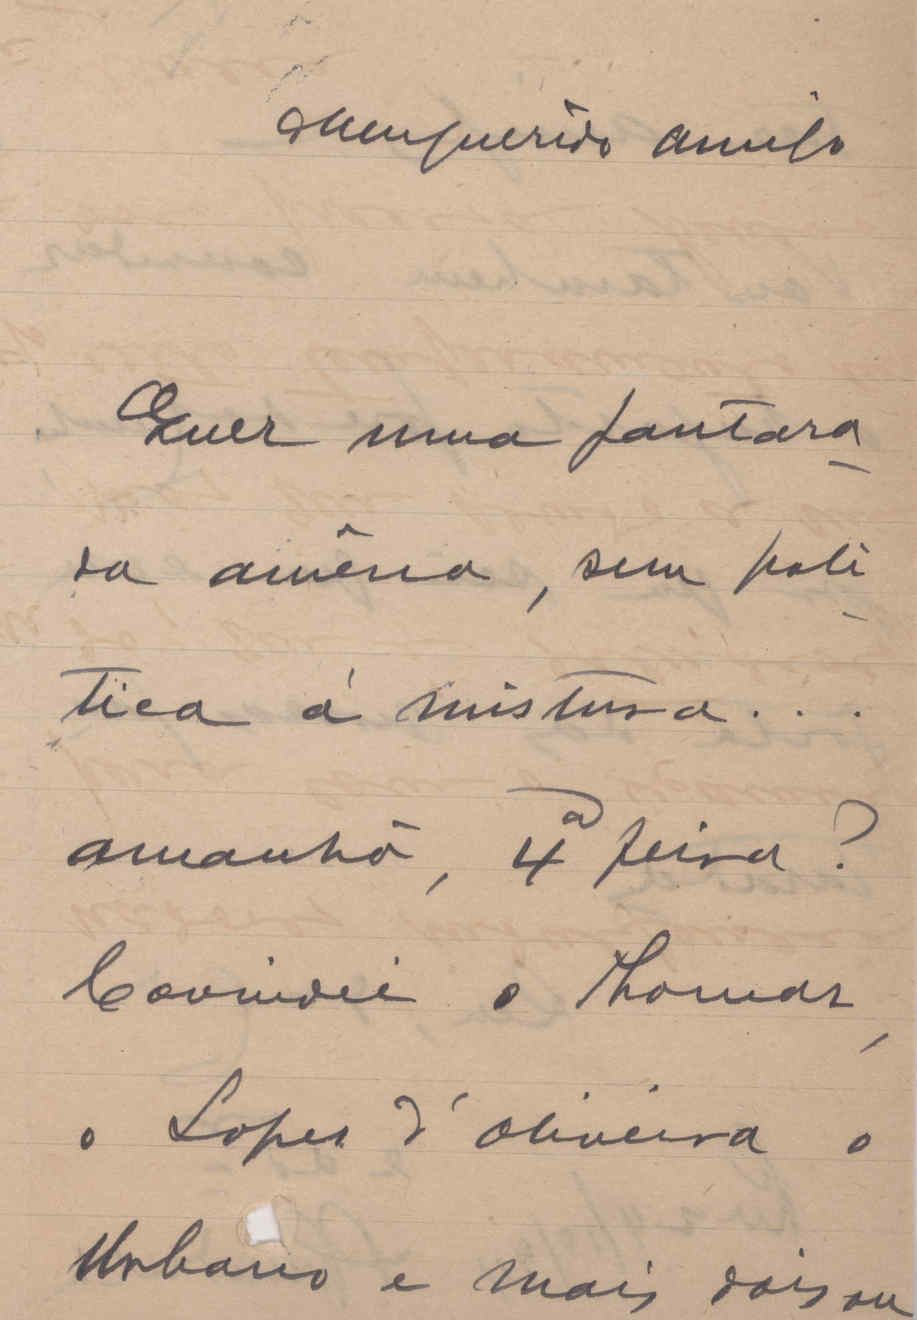 Meu querido amigo
Quer uma jantara
da amêna, sem poli
tica á mistura...
amanhã, 4ª feira?
Covidei o Thomas,
o Lopes d'Oliveira o
Urbano e mais dois ou